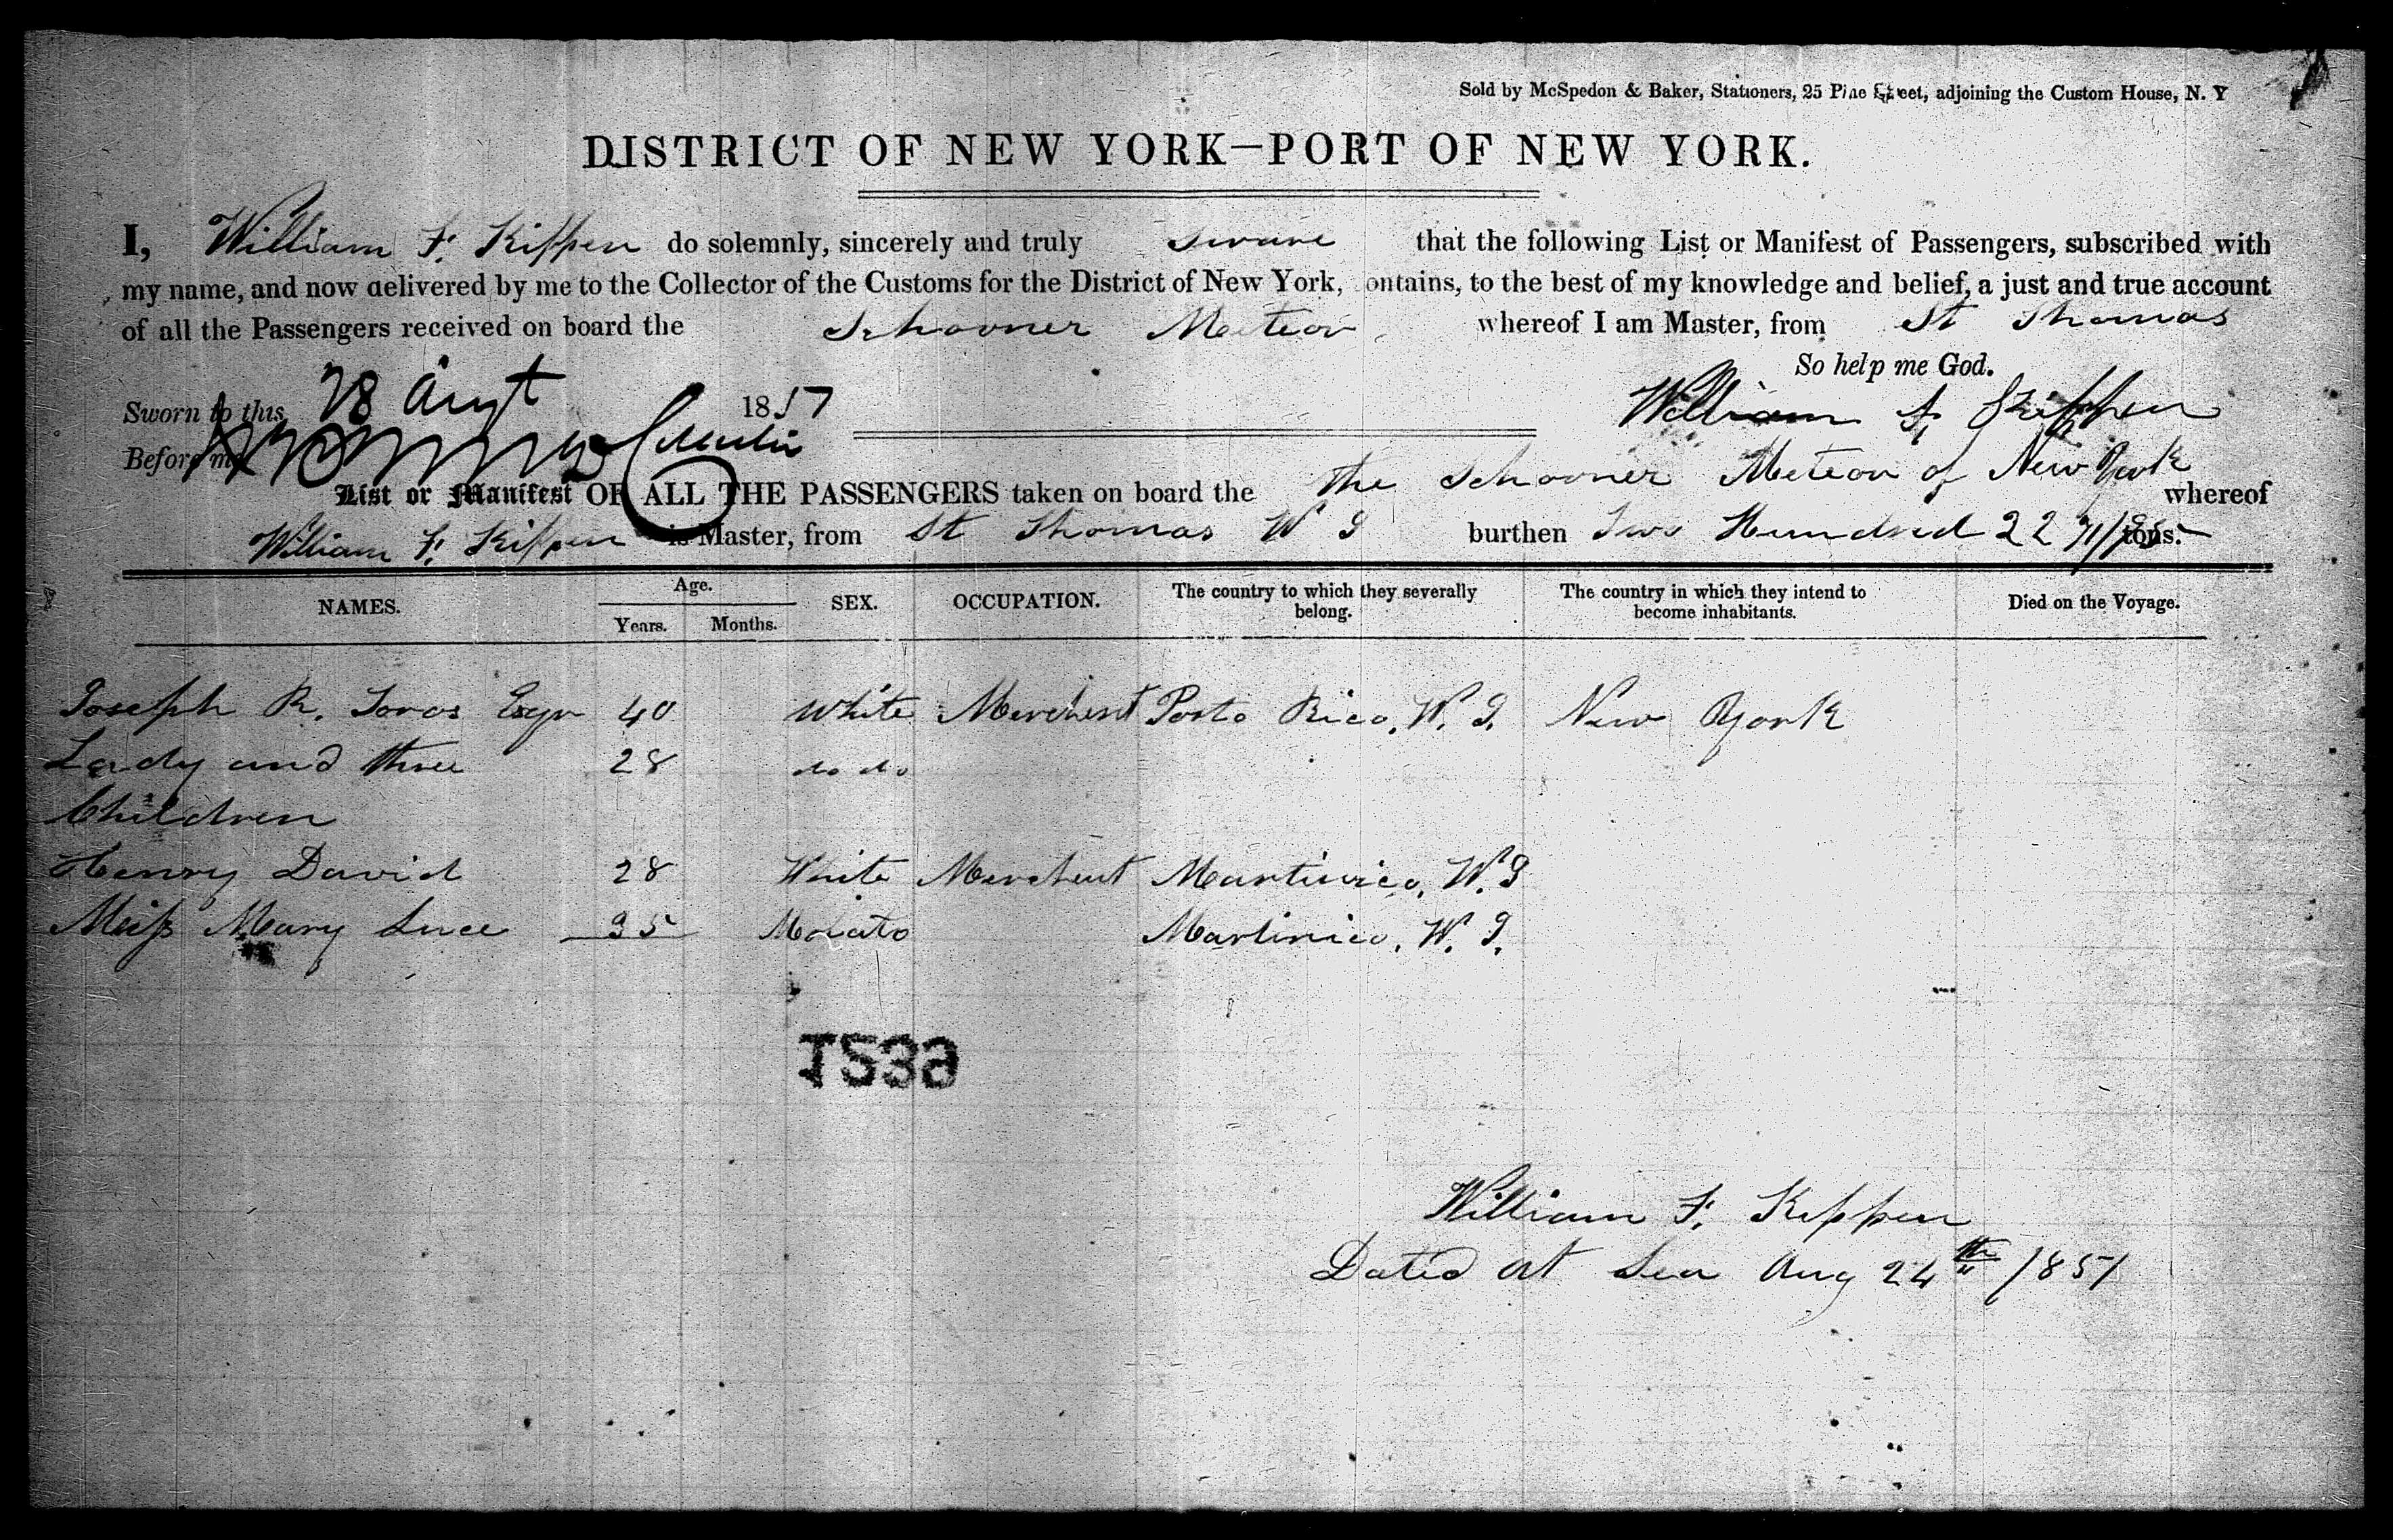 Sold by McSpedon & Baker, Stationers, 25 Pine Street, adjoining the Custom House, N. Y
DISTRICT OF NEW YORK—PORT OF NEW YORK.
I, William F. Kippen do solemnly, sincerely and truly Sware that the following List or Manifest of Passengers, subscribed with
my name, and now delivered by me to the Collector of the Customs for the District of New York, ontains, to the best of my knowledge and belief, a just and true account
of all the Passengers received on board the Schooner Meteor whereof I am Master, from St Thomas
So help me God.
Sworn to this 28 Augt 1857
William F. Kippen
Before me
List or Manifest OF ALL THE PASSENGERS taken on board the the Schooner Meteor of New York whereof
William F. Kippen is Master, from St Thomas W I burthen Two Hundred 22 71/95 tons.
NAMES. Age. Years. Months. SEX. OCCUPATION. The country to which they severally belong. The country in which they intend to become inhabitants. Died on the Voyage.
Joseph R. Toros Esqr 40 White Merchent Porto Rico, W. I. New York
Lady and three 28 do do
Children
Henry David 28 White Merchent Martinico, W. I
Miss Mary Luce 35 Molato Martinico, W. I.
1539
William F. Kippen
Dated at Sea Aug 24th 1857